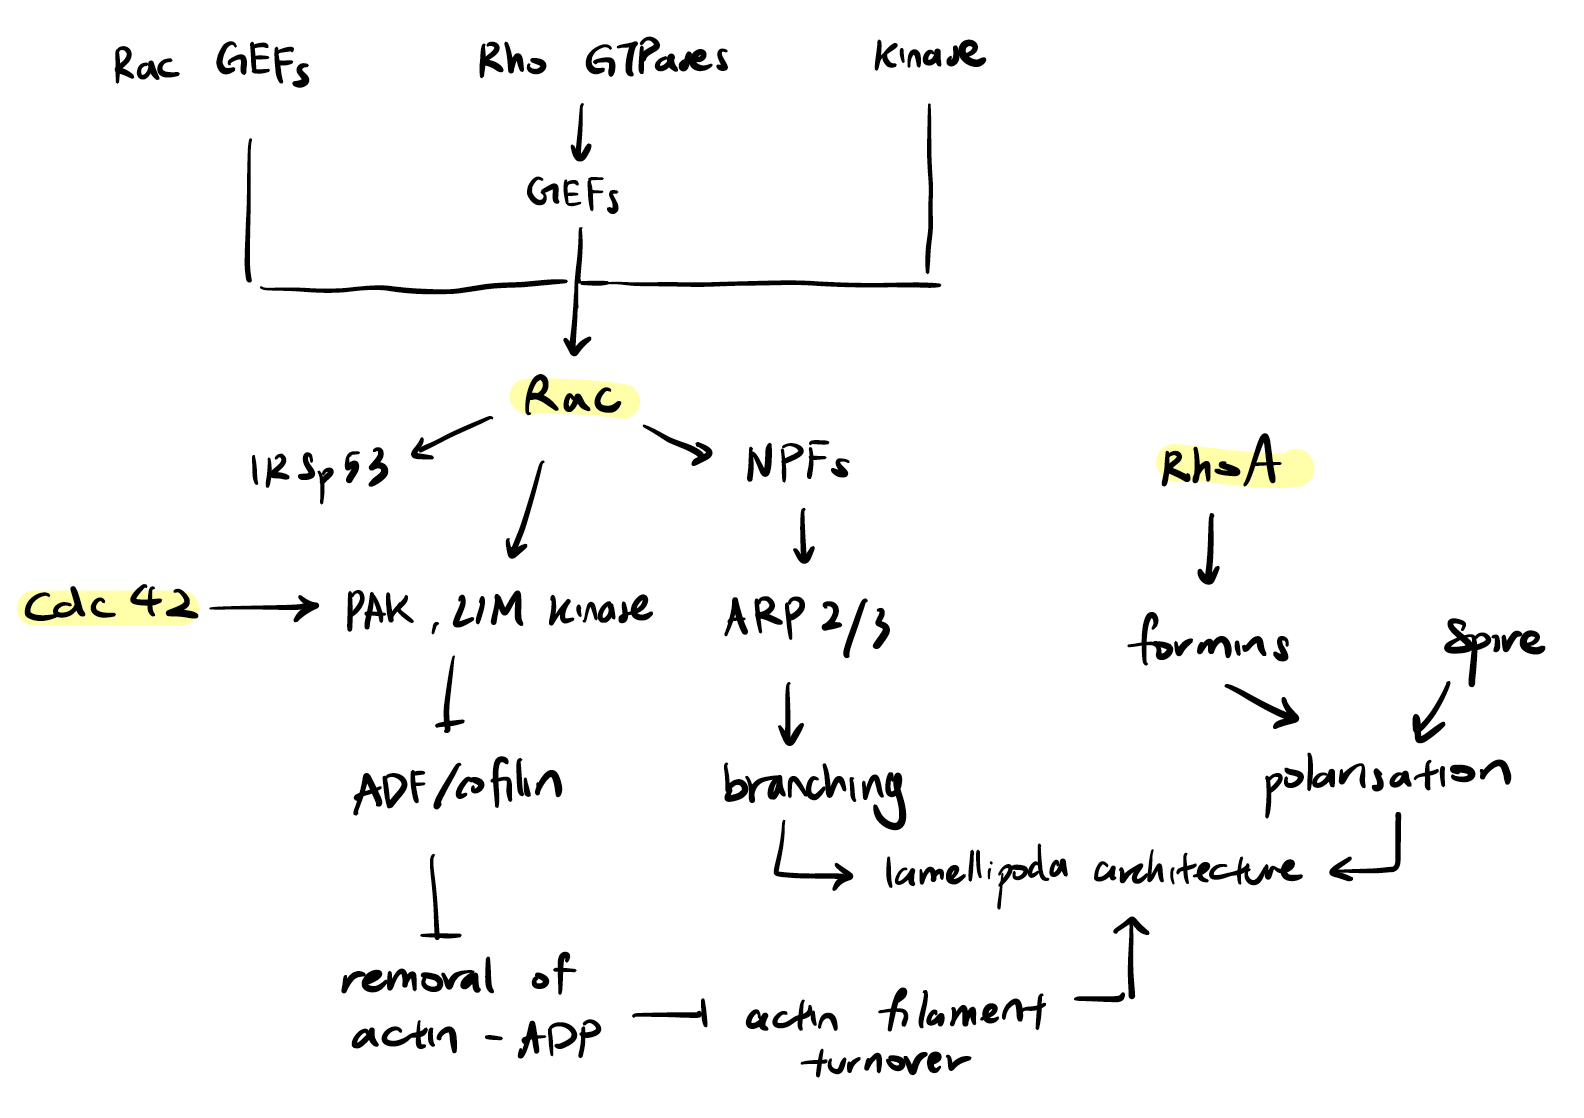 Rac GEFs
Rho GTPases
kinase
GEFs
Rac
IRSp53
NPFs
RhoA
Cdc 42
PAK, LIM kinase
ARP 2/3
formins
Spire
ADF/cofilin
branching
polarisation
lamellipoda architecture
removal of
actin - ADP
actin filament
turnover